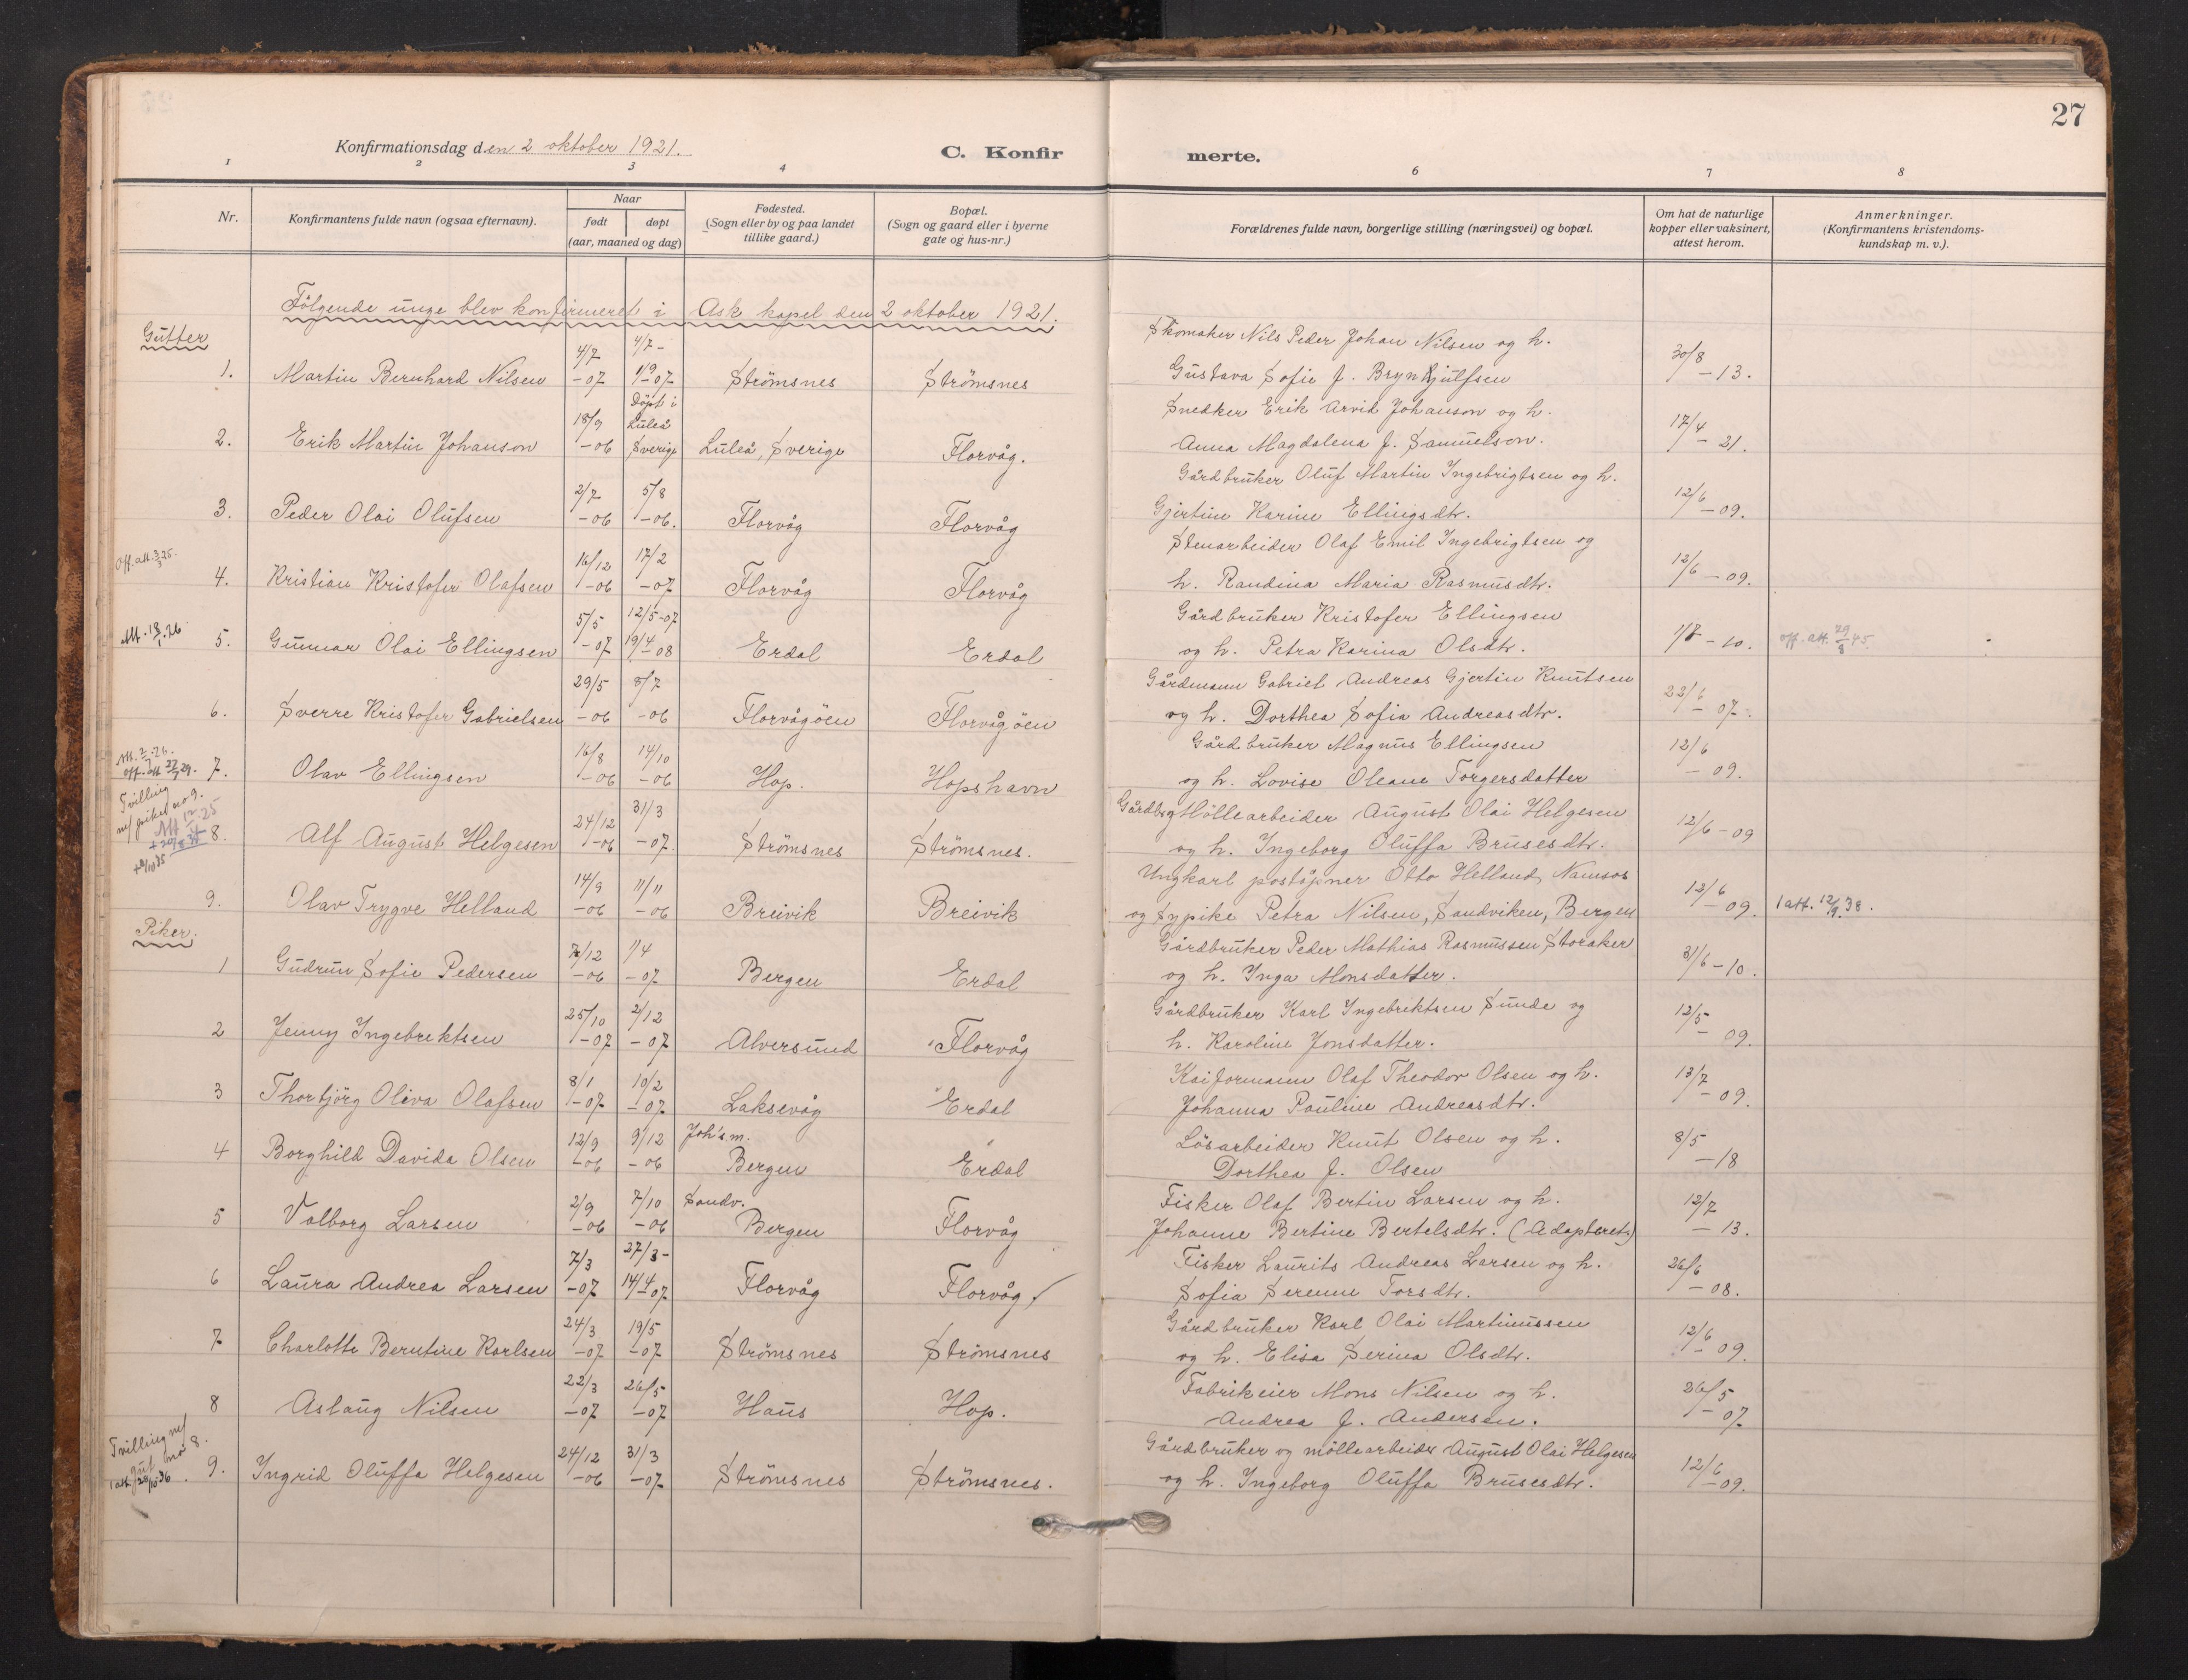 27
Konfirmationsdag den 2 oktober 1921.
C. Konfirmerte.
1 2 3 4 6 7 8
Nr.
Konfirmantens fulde navn (ogsaa efternavn).
Naar
født døpt
(aar, maaned og dag)
Fødested.
(Sogn eller by og paa landet
tillike gaard.)
Bopæl.
(Sogn og gaard eller i byerne
gate og hus-nr.)
Forældrenes fulde navn, borgerlige stilling (næringsvei) og bopæl.
Om hat de naturlige
kopper eller vaksinert,
attest herom.
Anmerkninger.
(Konfirmantens kristendoms-
kundskap m. v.).
Følgende unge blev konfirmeret i Ask kapel den 2 oktober 1921.
Gutter
4/7 4/7 - Skomaker Nils Peder Johan Nilsen og h. 30/8
1. Martin Bernhard Nilsen -07 1/9-07 Strömsnes Strömsnes Gustava Sofie f. Brynhjulfsen -13.
18/9 Döpt i Luleå Snedker Erik Arvid Johanson og h. 17/4
2. Erik Martin Johanson -06 Sverige Luleå, Sverige Florvåg. Anna Magdalena f. Samuelson. -21.
2/7 5/8 Gårdbruker Oluf Martin Ingebrigtsen og h. 12/6
3. Peder Olai Olufsen -06 -06. Florvåg Florvåg Gjertine Karine Ellingsdtr. -09.
Off. att. 3/3 25. 16/12 17/2 Stenarbeider Olaf Emil Ingebrigtsen og 12/6
4. Kristian Kristofer Olafsen -06 -07 Florvåg Florvåg h. Randina Maria Rasmusdtr. -09.
5/5 12/5-07 Gårdbruker Kristofer Ellingsen
Att. 18/1.26 5. Gunnar Olai Ellingsen -07 19/4 08 Erdal Erdal og h. Petra Karina Olsdtr. 1/8 -10. off. att. 29/8 45.
29/5 8/7 Gårdmann Gabriel Andreas Gjertin Knutsen 22/6
6. Sverre Kristofer Gabrielsen -06 -06 Florvågöen Florvågöen og h. Dorthea Sofia Andreasdtr. -07.
16/8 14/10 Gårdbruker Magnus Ellingsen 12/6
7. Olav Ellingsen -06 -06 Hop. Hopshavn og h. Lovise Oleane Torgersdatter -09.
Tvilling m/ piker no 9. 24/12 31/3 Gårdbr og Möllearbeider August Olai Helgesen 12/6
8. Alf August Helgesen -06 -07. Strömsnes Strömsnes. og h. Ingeborg Oluffa Brusesdtr. -09
14/9 11/11 Ungkarl poståpner Otto Helland, Namsos 12/6
9. Olav Trygve Helland -06 -06 Breivik Breivik og Sypike Petra Nilsen, Sandviken, Bergen -09. 1 att. 12/9.38.
Piker.
7/12 1/4 Gårdbruker Peder Mathias Rasmussen Storaker
1 Gudrun Sofie Pedersen -06 -07 Bergen Erdal og h. Inga Monsdatter. 31/6 -10.
25/10 2/12 Gårdbruker Karl Ingebriktsen Sunde og 12/5
2 Jenny Ingebrektsen -07 -07 Alversund Florvåg h. Karoline Jonsdatter. -09.
8/1 10/2 Kaiformann Olaf Theodor Olsen og h. 13/7
3 Thorbjörg Oliva Olafsen -07 -07 Laksevåg Erdal Johanna Pauline Andreasdtr. -09.
12/9 9/12 Joh's m. Lösarbeider Knut Olsen og h. 8/5
4 Borghild Davida Olsen -06 -06 Bergen Erdal Dorthea f. Olsen -18
2/9 7/10 Sandv. Fisker Olaf Bertin Larsen og h. 12/7
5 Valborg Larsen -06 -06 Bergen Florvåg Johanne Bertine Bertelsdtr. (Adopteret) -13.
7/3 27/3- Fisker Laurits Andreas Larsen og h. 26/6
6 Laura Andrea Larsen -07 14/4 07 Florvåg Florvåg Sofia Serenne Torsdtr. -08.
24/3 19/5 Gårdbruker Karl Olai Martinussen 12/6
7 Charlotte Berntine Karlsen -07 -07 Strömsnes Strömsnes og h. Elisa Serina Olsdtr. -09.
22/3 26/5 Fabrikeier Mons Nilsen og h. 26/5
8 Aslaug Nilsen -07 -07 Haus Hop. Andrea f. Andersen. -07
Tvilling m/ gut no 8. 24/12 31/3 Gårdbruker og möllearbeider August Olai Helgesen 12/6
1 att. 28/10 36. 9. Ingrid Oluffa Helgesen -06 -07 Strömsnes Strömsnes. og h. Ingeborg Oluffa Brusesdtr. -09.